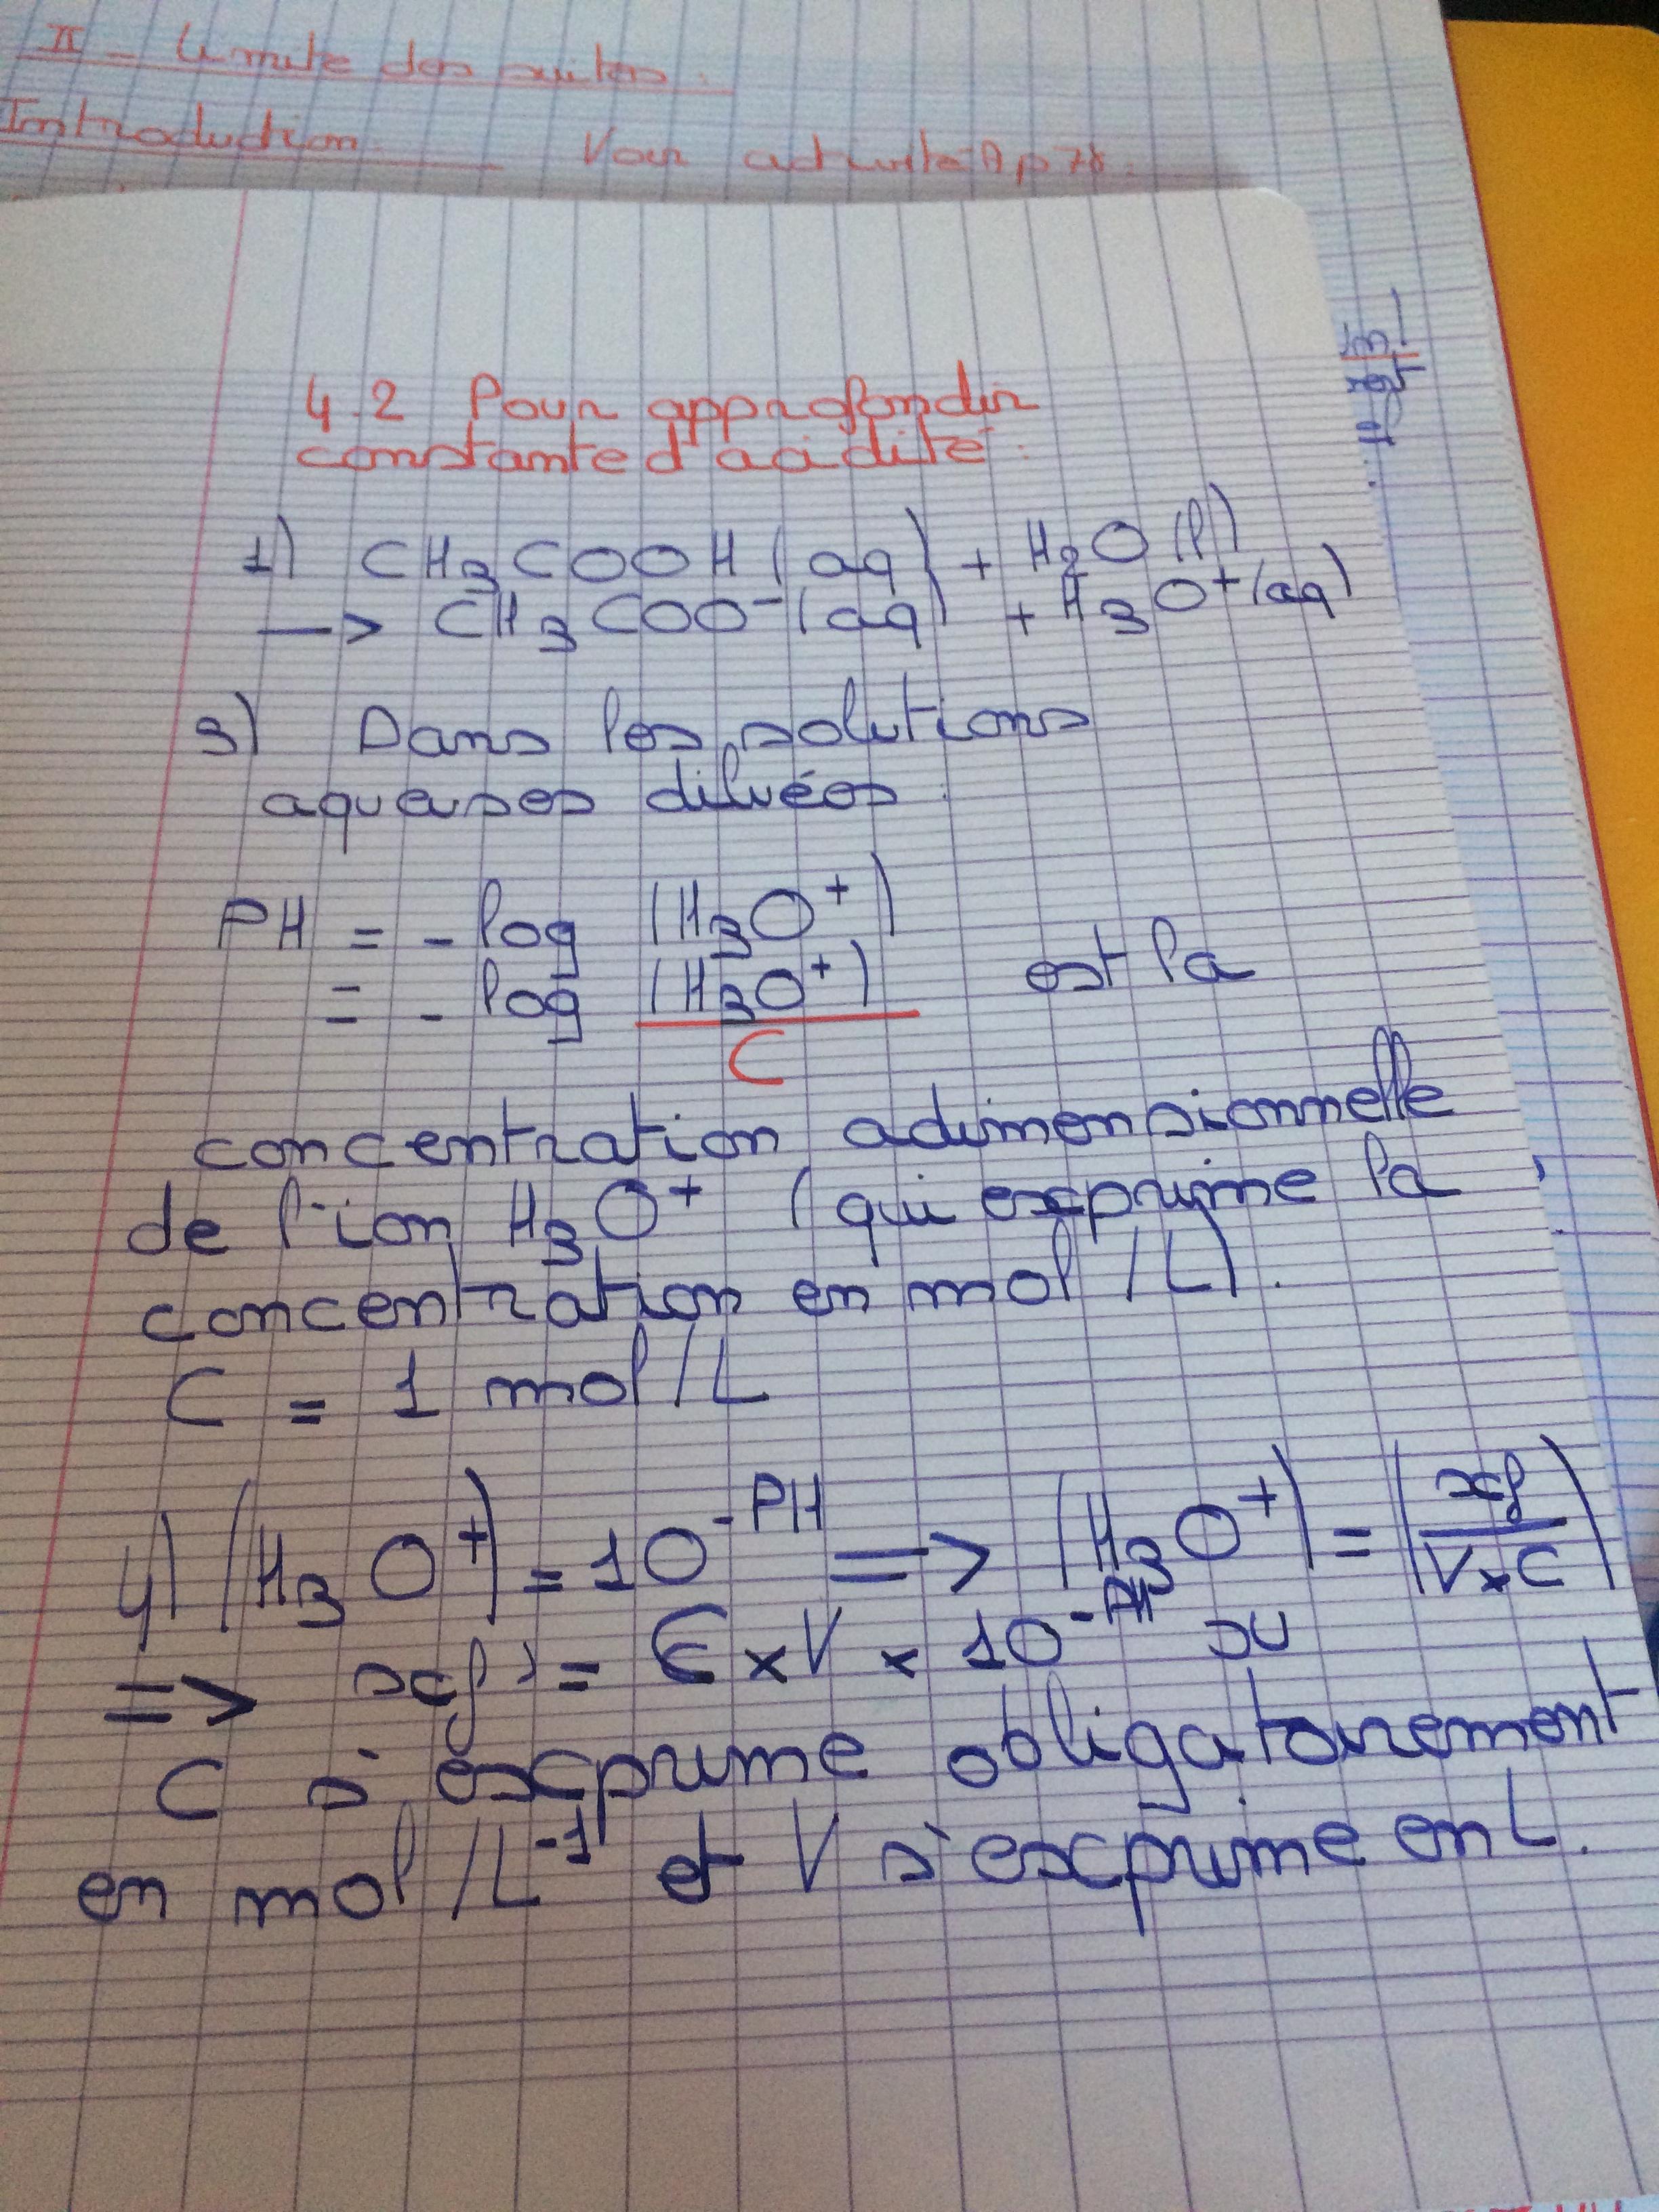 II - Limite des suites.
Introduction Voir activité A p 78.
4.2 Pour approfondir
constante d'acidité :
1) CH3COOH(aq) + H2O(l)
-> CH3COO-(aq) + H3O+(aq)
3) Dans les solutions
aqueuses diluées.
PH = - log (H3O+)
= - log (H3O+) / C est la
concentration adimensionnelle
de l'ion H3O+ (qui exprime la
concentration en mol/L).
C = 1 mol/L
4) (H3O+) = 10^-PH => (H3O+) = (xf / V×C)
=> xf = C×V × 10^-PH où
C s'exprime obligatoirement
en mol/L^-1 et V s'exprime en L.